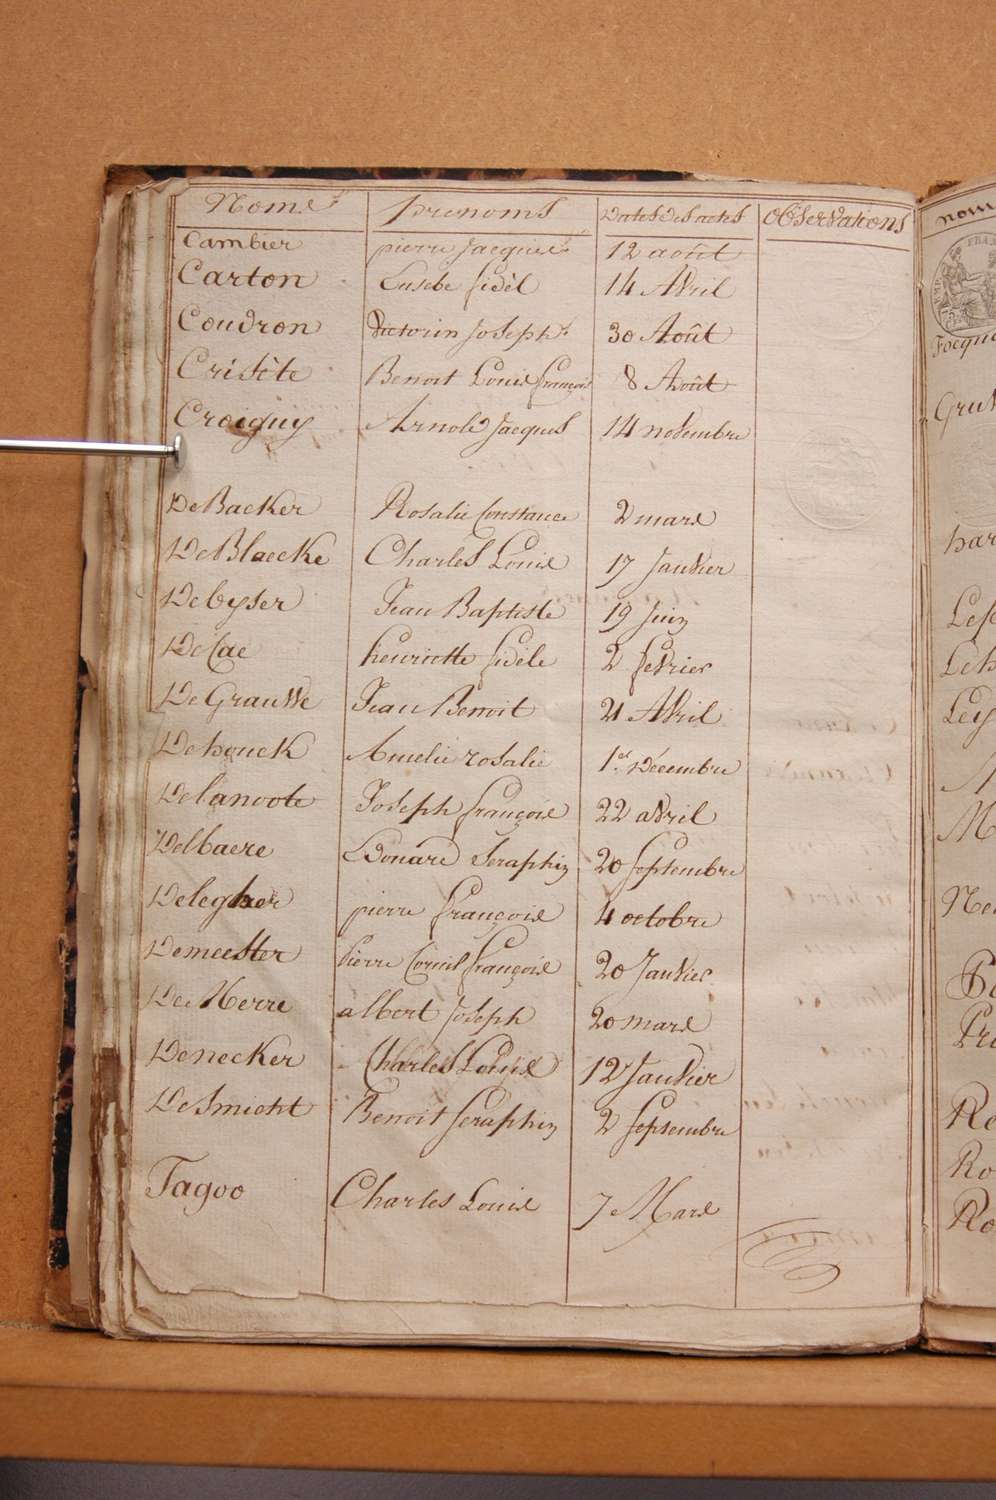 Noms prenoms Dates des actes Observations
Cambier pierre Jacques 12 août
Carton Eusebe fidèl 14 Avril
Coudron Victorin Joseph 30 Août
Benoit Louis François 8 Août
Croiguy Arnold Jacques 14 novembre
DeBacker Rosalie Constance 2 mars
DeBlaecke Charles Louis 17 Janvier
Jean Baptiste 19 Juin
DeCae henriette fidèle 2 fevrier
DeGrauwe Jean Benoit 21 Avril
Dehouck Amelie rosalie 1er Décembre
Delanoote Joseph François 22 avril
Delbaere Léonard Seraphin 20 Septembre
Delegher pierre François 4 octobre
Demeester Pierre Cornil François 20 Janvier
De Merre albert Joseph 20 mars
Denecker Charles Louis 12 Janvier
DeSmidt Benoit Seraphin 2 Septembre
Fagoo Charles Louis 7 Mars
nom
har